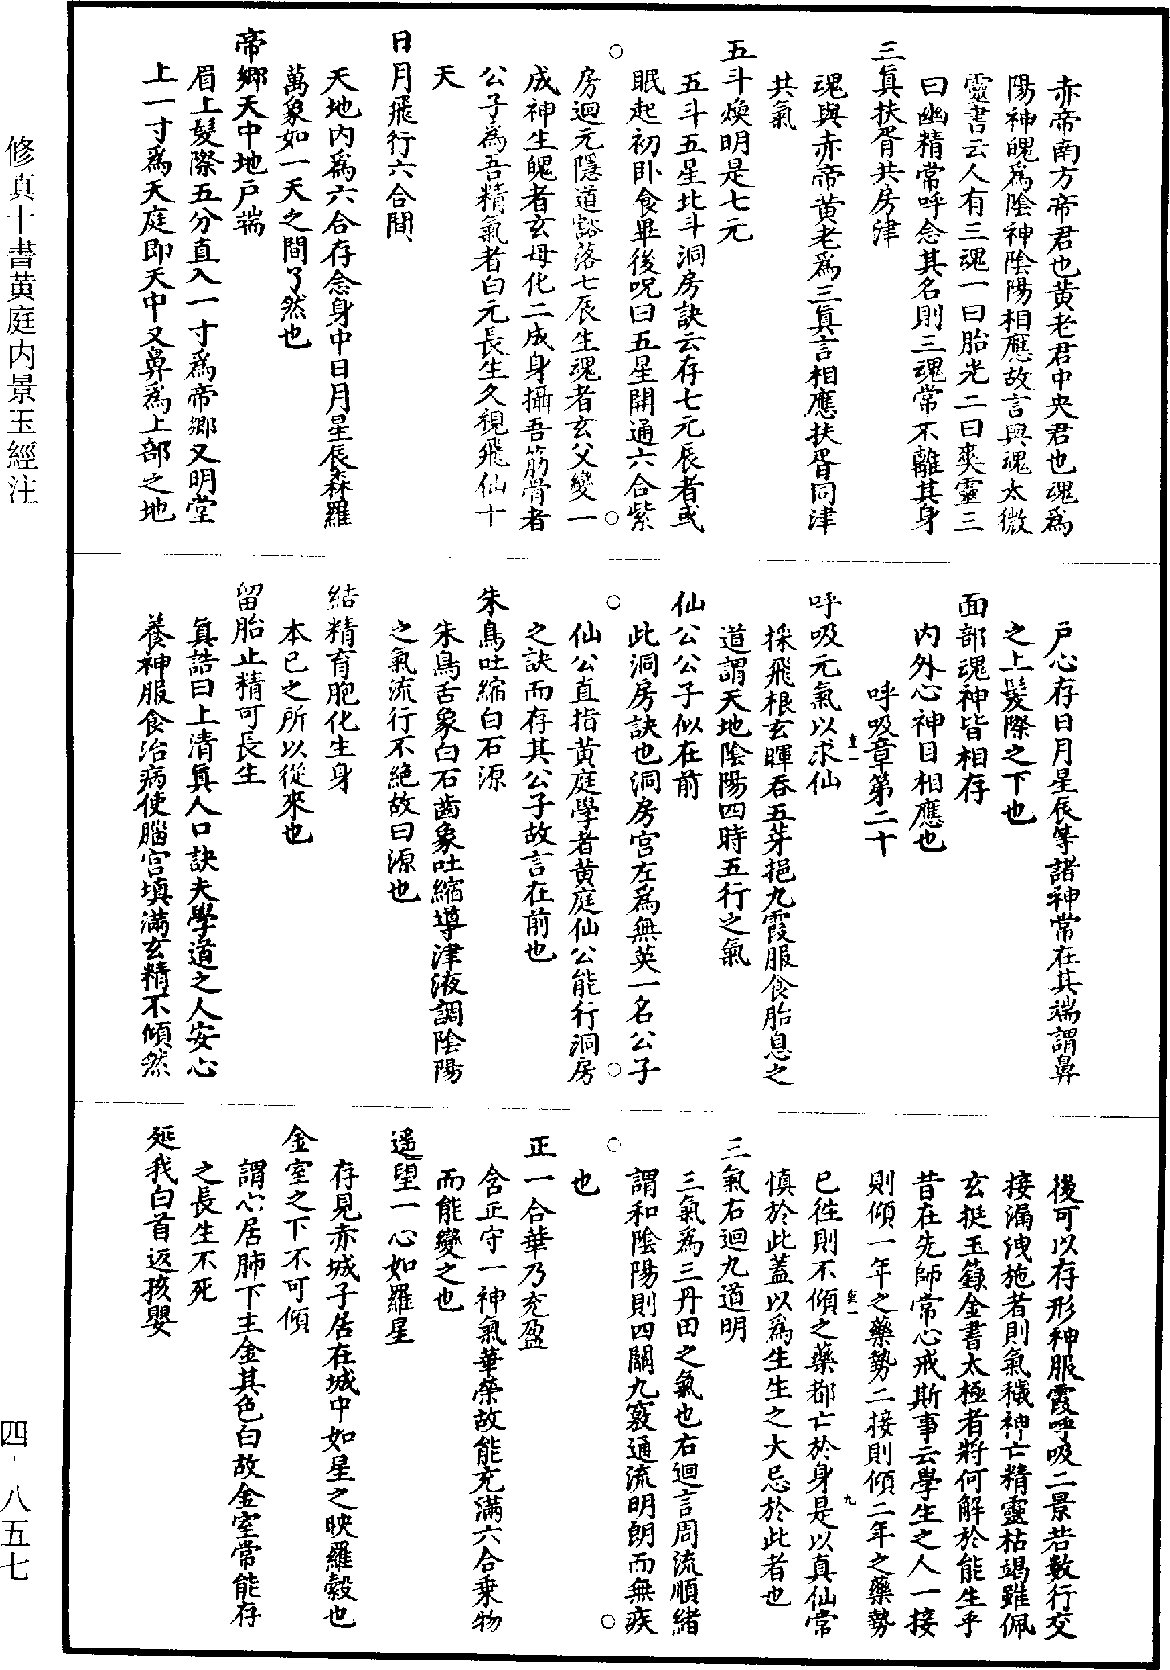 赤帝南方帝君也黄老君中央君也魂爲
陽神魄爲陰神陰陽相應故言與魂太微
靈書云人有三魂一曰胎光二曰爽靈三
曰幽精常呼念其名則三魂常不離其身
三眞扶胥共房津
魂與赤帝黄老爲三眞言相應扶胥同津
共氣
五斗煥明是七元
五斗五星北斗洞房訣云存七元辰者或
眠起初卧食畢後呪曰五星開通六合紫
房迴元隱道豁落七辰生魂者玄父變一
成神生魄者玄母化二成身攝吾筋骨者
公子爲吾精氣者白元長生久視飛仙十
天
日月飛行六合間
天地内爲六合存念身中日月星辰森羅
萬象如一天之間了然也
帝鄉天中地戶端
眉上髮際五分直入一寸爲帝鄉又明堂
上一寸爲天庭即天中又鼻爲上部之地
戶心存日月星辰等諸神常在其端謂鼻
之上髮際之下也
面部魂神皆相存
内外心神目相應也
呼吸章第二十
呼吸元氣以求仙
採飛根玄暉吞五芽挹九霞服食胎息之
道謂天地陰陽四時五行之氣
仙公公子似在前
此洞房訣也洞房宫左爲無英一名公子
仙公直指黄庭學者黄庭仙公能行洞房
之訣而存其公子故言在前也
朱鳥吐縮白石源
朱鳥舌象白石齒象吐縮導津液調陰陽
之氣流行不絶故曰源也
結精育胞化生身
本已之所以從來也
留胎止精可長生
眞誥曰上清眞人口訣夫學道之人安心
養神服食治病使腦宫填滿玄精不傾然
後可以存形神服霞呼吸二景若數行交
接漏洩施者則氣穢神亡精靈枯竭雖佩
玄挺玉籙金書太極者將何解於能生乎
昔在先師常心戒斯事云學生之人一接
則傾一年之藥勢二接則傾二年之藥勢
已徃則不傾之藥都亡於身是以真仙常
慎於此蓋以爲生生之大忌於此者也
三氣右迴九道明
三氣爲三丹田之氣也右迴言周流順緒
謂和陰陽則四關九竅通流明朗而無疾
也
正一合華乃充盈
含正守一神氣華榮故能充滿六合乗物
而能變之也
遥望一心如羅星
存見赤城子居在城中如星之映羅縠也
金室之下不可傾
謂心居肺下主金其色白故金室常能存
之長生不死
延我白首返孩嬰
修真十書黄庭内景玉經注
四-八五七